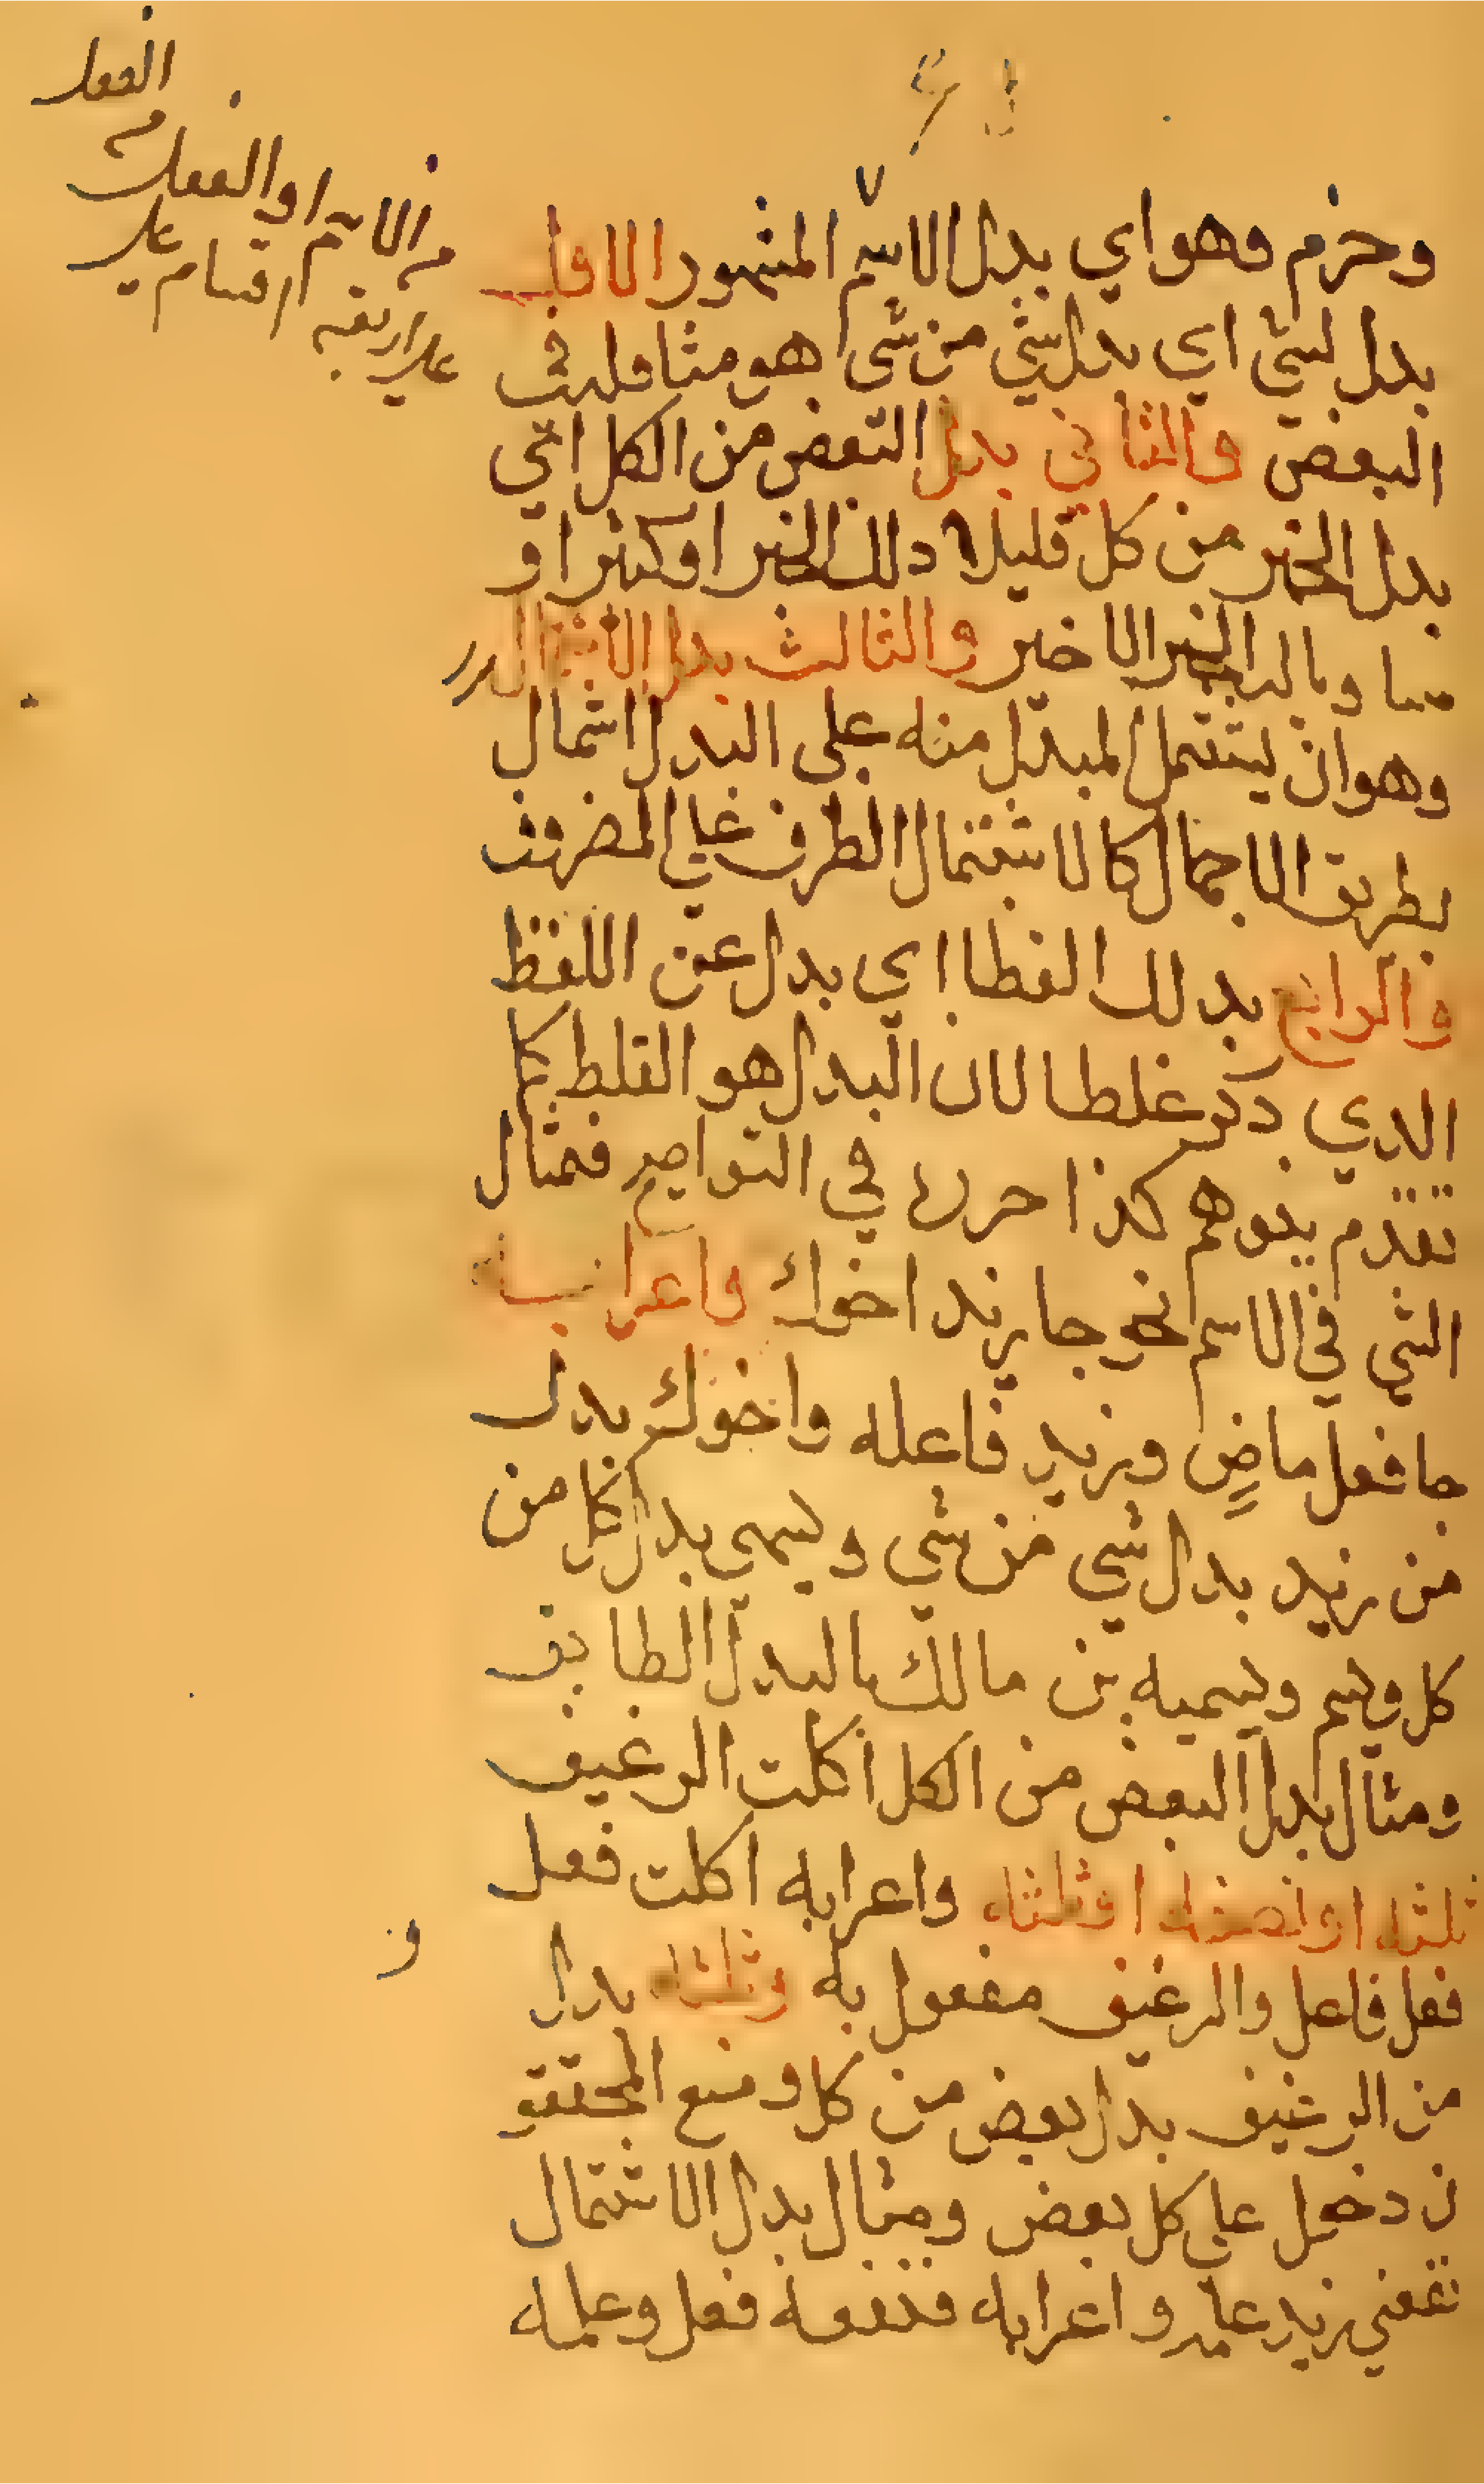 وجزم وهو اي بدل الاسم المشهور الاول
بدل لشي اي بدل شي من شي هو مثا قلت
البعض والثاني بدل البعض من الكل اي
بدل الجز من كل قليلا دلك الجز او كثيرا و
مساويا الجز الاخير والثالث بدل الاشتمال
وهو ان يشتمل المبدل منه على البدل اشتمال
بطريق الاجمال كالاشتمال الظرف علي المضروف
والرابع بدلك الغطا اي بدل عن اللفظ
الدي ذكر غلطا لاان البدل هو الغلط كما
تقدم يتوهم كذا حرره في التواضيح فمثال
الشي في الاسم نحو جا زيد اخوك واعرابه
جا فعل ماضٍ وزيد فاعله واخوك بدل
من زيد بدل شي من شي ويسمي بدل كل من
كل ويسميه بن مالك بالبدل الطابق
ومثال بدل البعض من الكل اكلت الرغيف
ثلثه او نصفه او ثلثاه واعرابه اكلت فعل
فعل فاعل والرغيف مفعول به وثلثه بدل
من الرغيف بدل بعض من كل ومنع المحققو
ن دخول علي كل بعض ومثال بدل الاشتمال
نفعني زيد علمه واعرابه فنفعه فعل وعلمه
الفعل
من الاسم او الفعل
علي اربعة اقسام علي